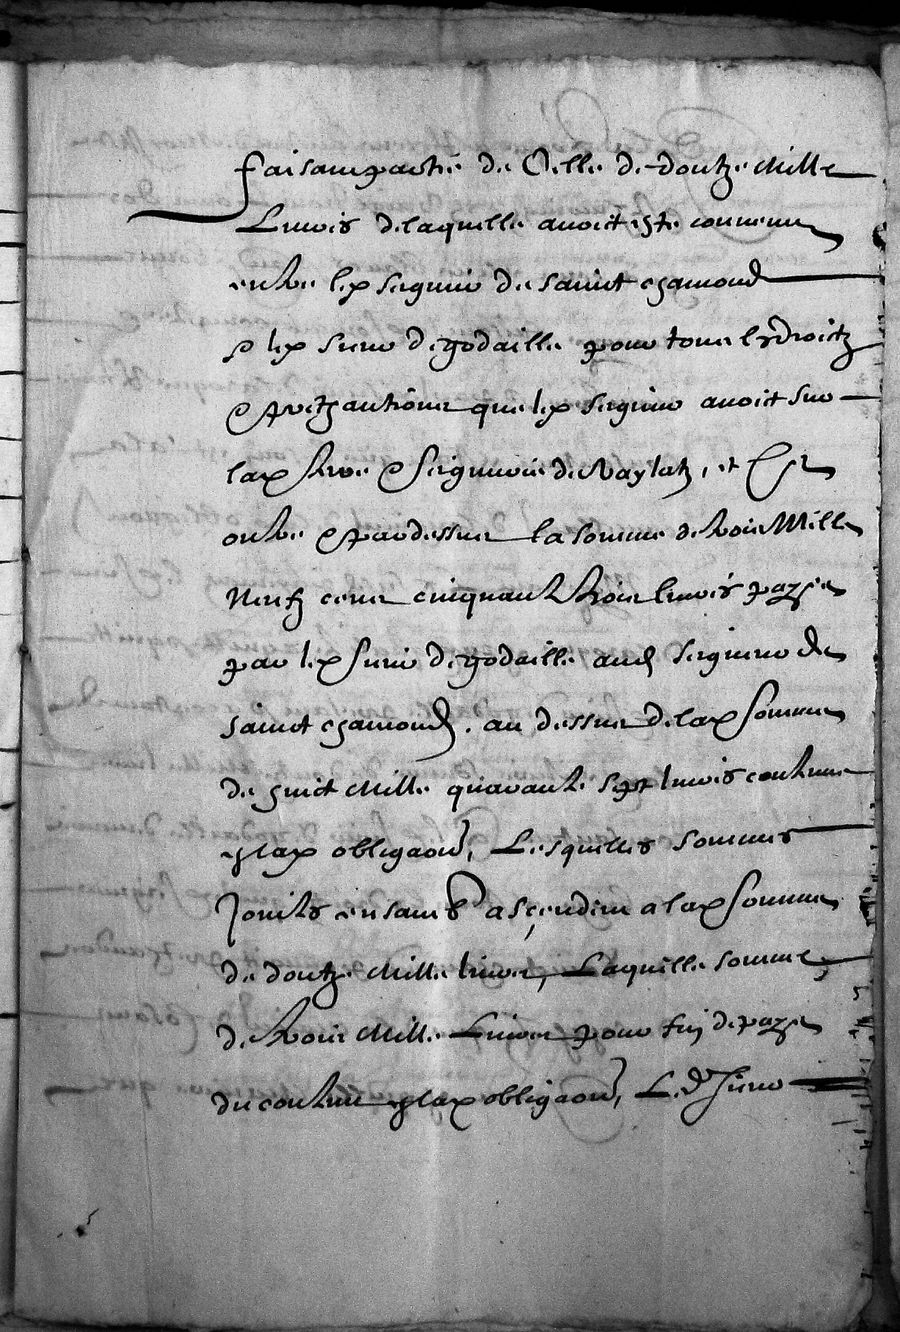 faisant partie de Celle de doutze Mille
Livres de laquelle avoit este convenu
entre lesd seigneur de saint chamond
& led sieur de godaille pour tous les droicts
& pretzantions que led seigneur avoit sur
lad terre & seigneurie de Naylatz, et Ce
outre & par dessus la somme de trois Mille
Neufz cens cinquante trois livres payée
par led sieur de godaille aud seigneur de
saint chamond. au dessus de lad somme
de huict Mille quarante sept livres contenue
en lad obligaon, Lesquelles sommes
Jointes ensamb ascendent a lad somme
de doutze Mille livres, Laquelle somme
de trois Mille Livres pour fin de paye
du contenu en lad obligaon, Led Sieur